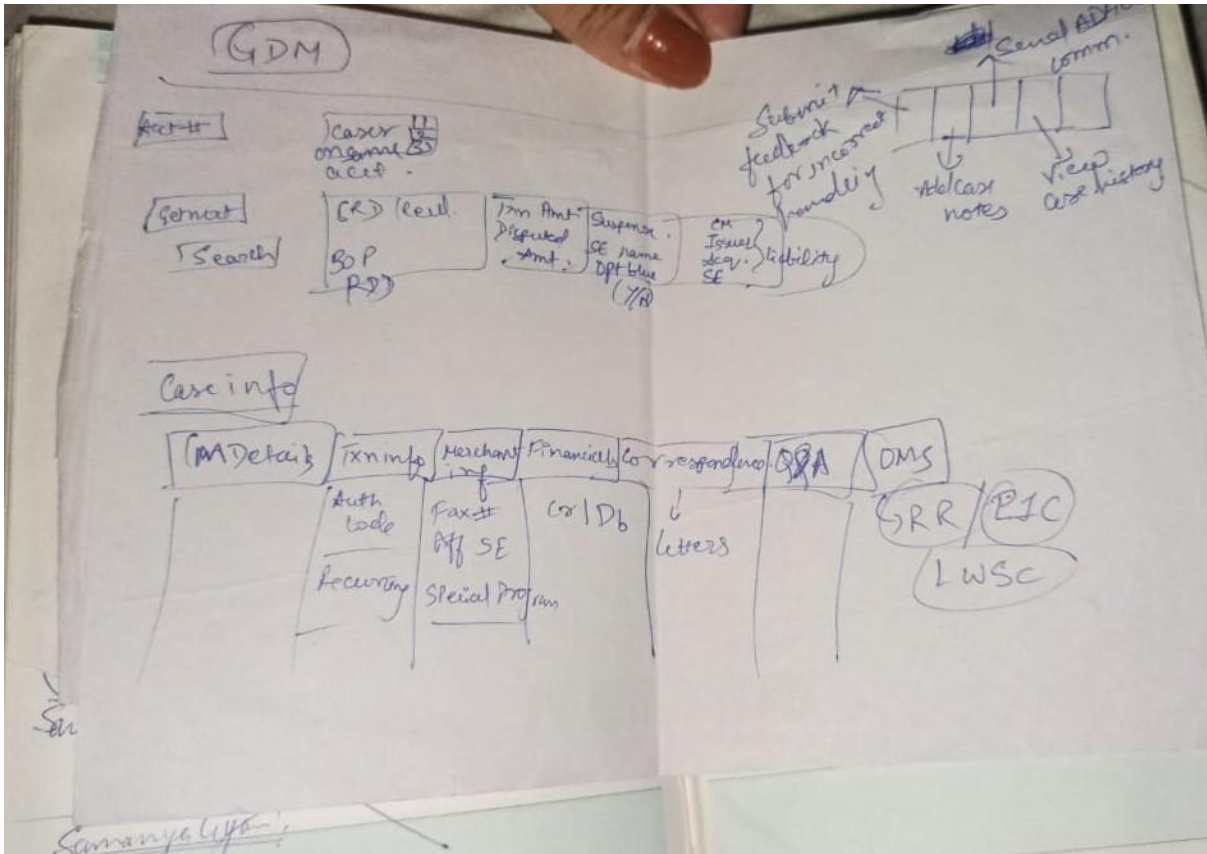 GDM
Send ADHOC
comm.
Submit
feedback
for incorrect
handling
Add case
notes
View
case history
Acct #
cases
on same
acct.
1
2
3
Getnext
Search
BOP
Txn Amt
Disputed
Amt.
Suspense.
SE name
Opt blue
(Y/N)
CM
Issuer
Acq.
SE
liability
Case info
Details
Txn info
Merchant
inf
Financials
Correspondence
Q&A
DMS
Auth
Code
Recurring
Fax #
Aff SE
Special Program
Cr/Db
letters
SRR
LWSC